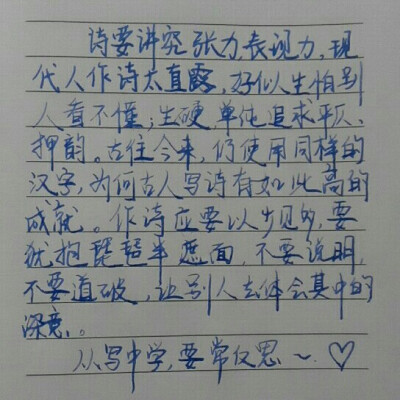 诗要讲究张力,表现力,现
代人作诗太直露,好似人生怕别
人看不懂;生硬,单纯追求平仄、
押韵。古往今来,仍使用同样的
汉字,为何古人写诗有如此高的
成就。作诗应要以少见多,要
犹抱琵琶半遮面,不要说明,
不要道破,让别人去体会其中的
深意。
从写中学,要常反思~♡